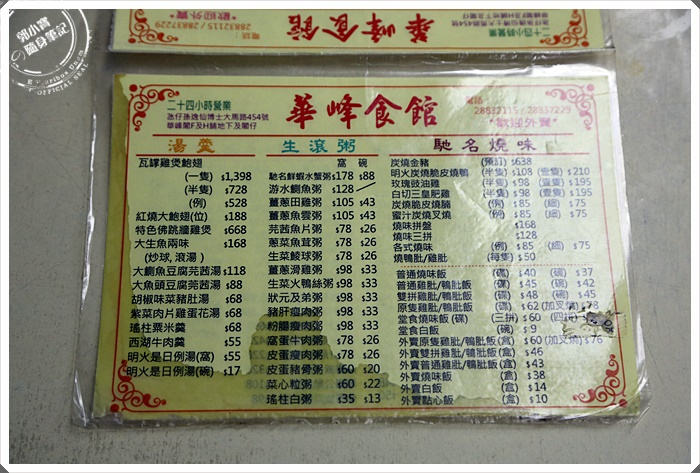 華峰食館
二十四小時營業
氹仔孫逸仙博士大馬路454號
華峰閣F及H鋪地下及閣仔
華峰食館
電話
28832115 / 28837229
"歡迎外賣"
湯羹
瓦罉雞煲鮑翅
(一隻) $1,398
(半隻) $728
(例) $528
紅燒大鮑翅(位) $188
特色佛跳牆雞煲 $668
大生魚兩味 $168
(炒球,滾湯)
大鱲魚豆腐芫茜湯 $118
大魚頭豆腐芫茜湯 $88
胡椒味菜豬肚湯 $68
紫菜肉片雞蛋花湯 $68
瑤柱粟米羹 $68
西湖牛肉羹 $55
明火是日例湯(窩) $55
明火是日例湯(碗) $17
生滾粥
窩 碗
馳名鮮蝦水蟹粥 $178 $88
游水鱲魚粥 $128
薑蔥田雞粥 $105 $43
薑蔥魚雲粥 $105 $43
芫茜魚片粥 $78 $26
蔥菜魚茸粥 $78 $26
生菜鯪球粥 $78 $26
薑蔥滑雞粥 $98 $33
生菜火鴨絲粥 $98 $33
狀元及弟粥 $98 $33
豬肝瘦肉粥 $98 $33
粉腸瘦肉粥 $98 $33
窩蛋牛肉粥 $78 $26
皮蛋瘦肉粥 $78 $26
皮蛋豬骨粥 $60 $20
菜心粒粥 $60 $22
瑤柱白粥 $35 $13
馳名燒味
炭燒金豬 (預訂) $638
明火炭燒脆皮燒鴨 (半隻) $108 (壹隻) $210
玫瑰豉油雞 (半隻) $98 (壹隻) $195
白切三皇肥雞 (半隻) $98 (壹隻) $195
炭燒脆皮燒腩 (例) $85 (細) $75
蜜汁炭燒叉燒 (例) $85 (細) $75
燒味拼盤 $168
燒味三拼 $128
各式燒味 (例) $85 (細) $75
燒鴨肶/雞肶 (每隻) $50
普通燒味飯 (碟) $40 (碗) $37
普通雞肶/鴨肶飯 (碟) $45 (碗) $42
雙拼雞肶/鴨肶飯 (碟) $48 (碗) $45
原隻雞肶/鴨肶飯 (碟) $62 (加叉燒) $78
堂食燒味飯(碟) (三拼) $60 (四拼)
堂食白飯 (碗) $9
外賣原隻雞肶/鴨肶飯 (盒) $60 (加叉燒) $76
外賣雙拼雞肶/鴨肶飯 (盒) $46
外賣普通雞肶/鴨肶飯 (盒) $43
外賣燒味飯 (盒) $38
外賣白飯 (盒) $14
外賣點心飯 (盒) $10